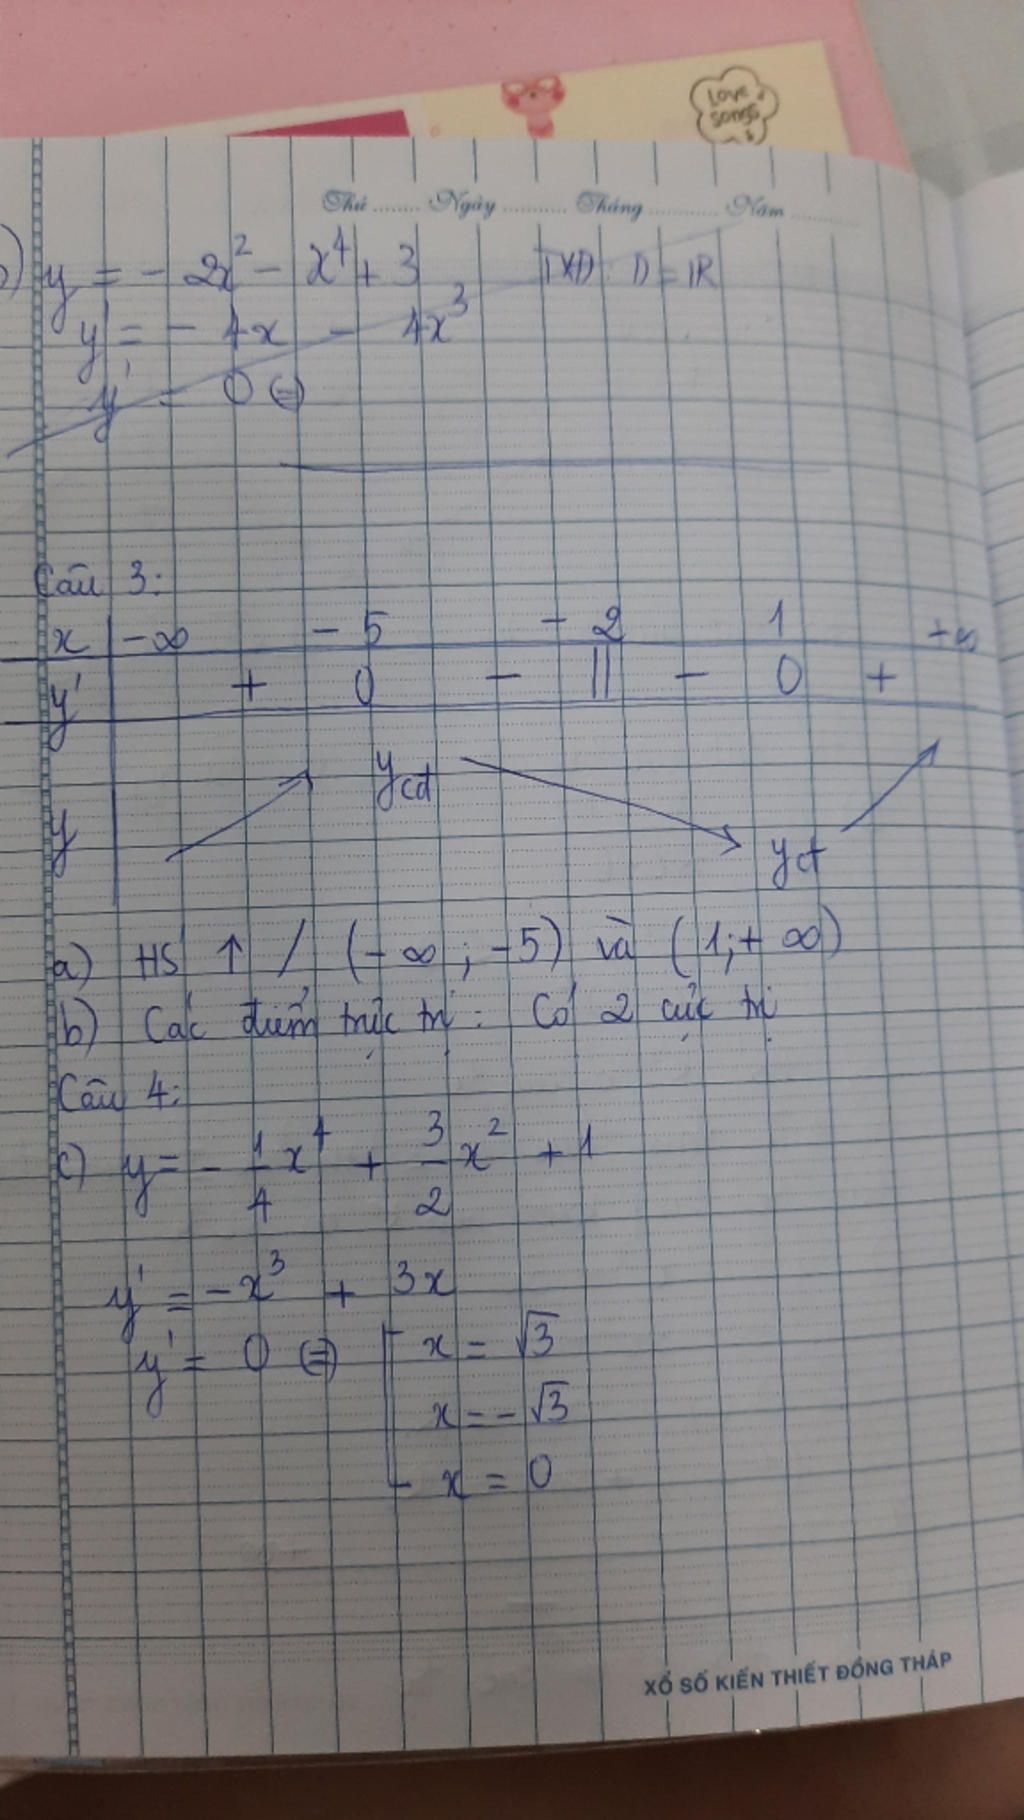 Love
songs
Thứ ........ Ngày ........... Tháng ........... Năm ...........
b) y = - 2x² - x⁴ + 3 TXĐ: D = ℝ
y' = - 4x - 4x³
y' = 0 (=)
Câu 3:
x -∞ -5 -2 1 +∞
y' + 0 - || - 0 +
y ycđ yct
a) HS ↑ / (-∞ ; -5) và (1; +∞)
b) Các điểm trực trị: Có 2 cực trị
Câu 4:
c) y = - 1/4 x⁴ + 3/2 x² + 1
y' = -x³ + 3x
y' = 0 (=) [ x = √3
x = -√3
x = 0
XỔ SỐ KIẾN THIẾT ĐỒNG THÁP